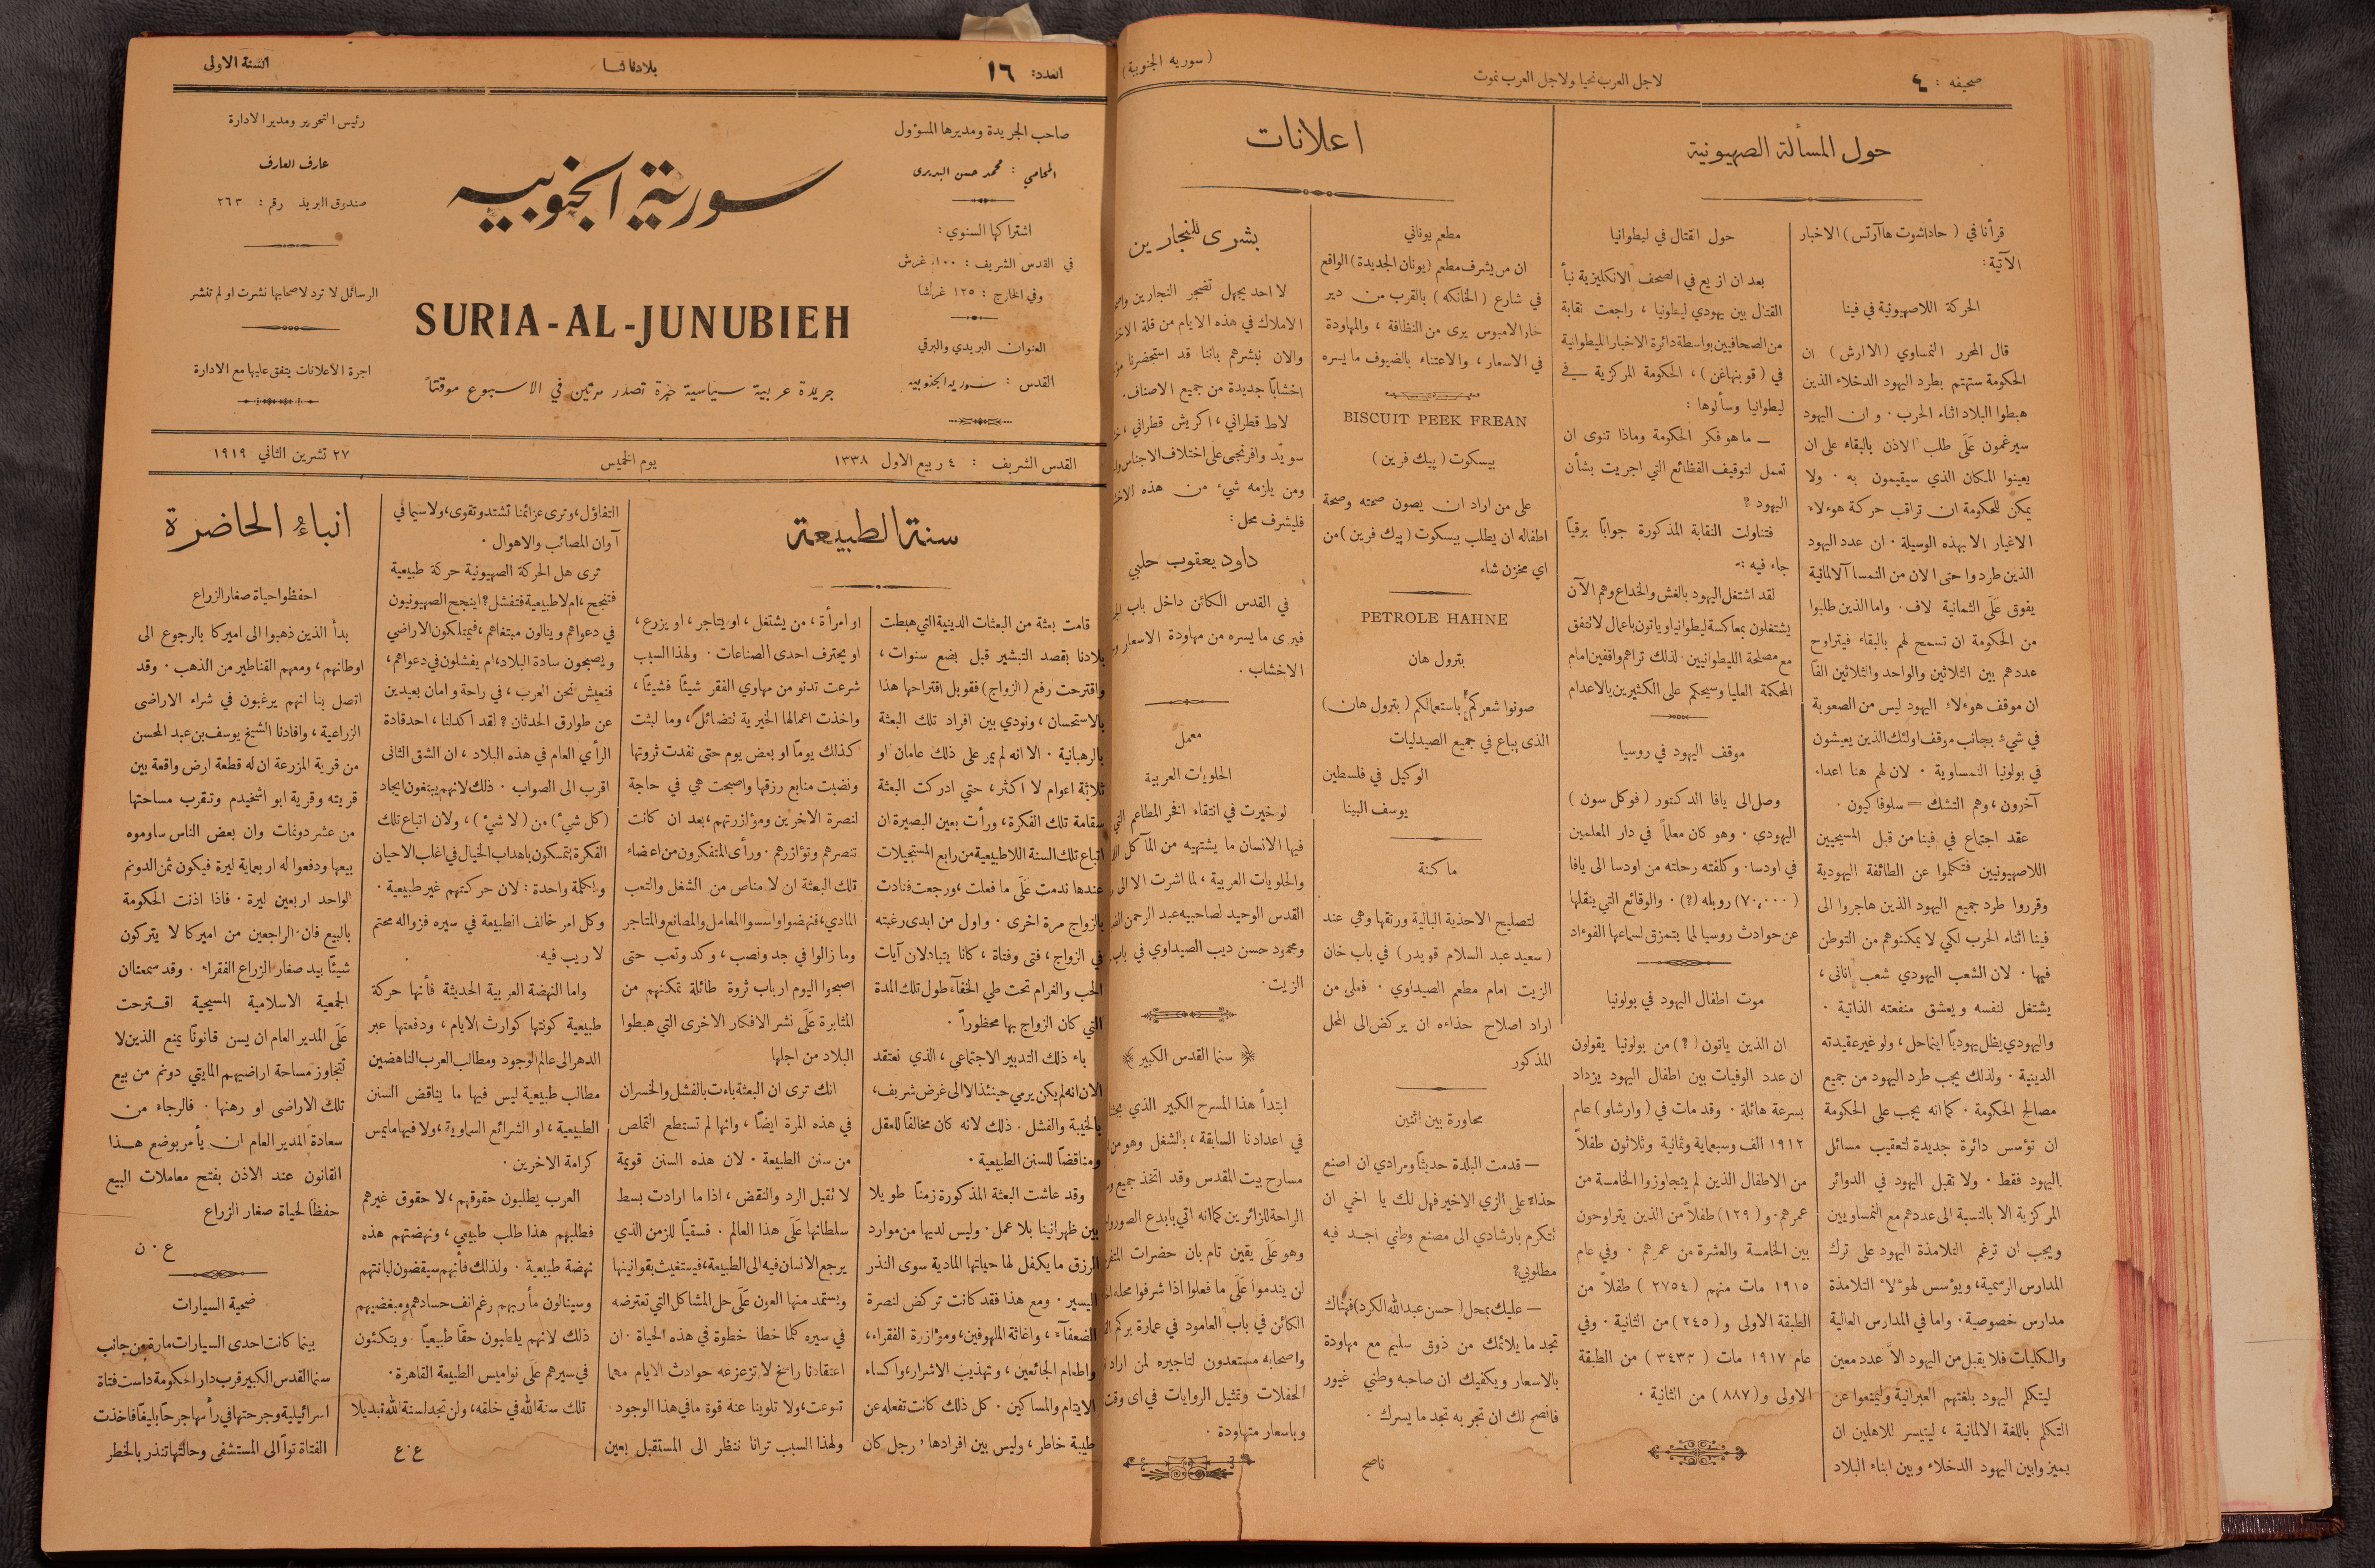 صحيفه : ٤
لاجل العرب نحيا ولاجل العرب نموت
(سوريه الجنوبية)
حول المسألة الصهيونية
قرأنا في (حاداشوت هاآرتس) الاخبار
الآتية :
الحركة اللاصهيونية في فينا
قال المحرر النمساوي (الارش) ان
الحكومة ستهتم بطرد اليهود الدخلاء الذين
هبطوا البلاد اثناء الحرب . وان اليهود
سيرغمون عَلَى طلب الاذن بالبقاء على ان
يعينوا المكان الذي سيقيمون به . ولا
يمكن للحكومة ان تراقب حركة هوءلاء
الاغيار الا بهذه الوسيلة . ان عدد اليهود
الذين طردوا حتى الان من النمسا آلالمانية
يفوق عَلَى الثمانية لاف . واما الذين طلبوا
من الحكومة ان تسمح لهم بالبقاء فيتراوح
عددهم بين الثلاثين والواحد والثلاثين الفًا
ان موقف هوءلاء اليهود ليس من الصعوبة
في شيء بجانب موقف اولئك الذين يعيشون
في بولونيا النمساوية . لان لهم هنا اعداء
آخرون ، وهم التشك = سلوفاكيون .
عقد اجتماع في فينا من قبل المسيحيين
اللاصهيونيين فتكلموا عن الطائفة اليهودية
وقرروا طرد جميع اليهود الذين هاجروا الى
فينا اثناء الحرب لكي لا يمكنوهم من التوطن
فيها . لان الشعب اليهودي شعب انانى ،
يشتغل لنفسه ويعشق منفعته الذاتية .
واليهودي يظل يهوديًا اينما حل ، ولو غير عقيدته
الدينية . ولذلك يجب طرد اليهود من جميع
مصالح الحكومة . كما انه يجب على الحكومة
ان تؤسس دائرة جديدة لتعقيب مسائل
اليهود فقط . ولا تقبل اليهود في الدوائر
المركزية الا بالنسبة الى عددهم مع النمساويين
ويجب ان ترغم التلامذة اليهود على ترك
المدارس الرسمية ، ويؤسس لهؤلاء التلامذة
مدارس خصوصية . واما في المدارس العالية
والكليات فلا يقبل من اليهود الاّ عدد معين
ليتكلم اليهود بلغتهم العبرانية وليمنعوا عن
التكلم باللغة الالمانية ، ليتيسر للاهلين ان
يميزوا بين اليهود الدخلاء وبين ابناء البلاد
حول القتال في ليطوانيا
بعد ان اذيع في الصحف الانكليزية نبأ
القتال بين يهودي ليطونيا ، راجعت نقابة
من الصحافيين بواسطة دائرة الاخبار الليطوانية
في (قوبنهاغن) ، الحكومة المركزية في
ليطوانيا وسألوها :
— ما هو فكر الحكومة وماذا تنوى ان
تعمل لتوقيف الفظائع التي اجريت بشأن
اليهود ؟
فتناولت النقابة المذكورة جوابًا برقيًا
جاء فيه :-
لقد اشتغل اليهود بالغش والخداع وهم الآن
يشتغلون بمعاكسة ليطوانيا وياتون باعمال لا تتفق
مع مصلحة الليطوانيين . لذلك تراهم واقفين امام
المحكمة العليا وسيحكم على الكثيرين بالاعدام
موقف اليهود في روسيا
وصل الى يافا الدكتور (فوكل سون)
اليهودي . وهو كان معلماً في دار المعلمين
في اودسا . وكلفته رحلته من اودسا الى يافا
(٧٠,٠٠٠) روبله (؟) . والوقائع التي ينقلها
عن حوادث روسيا لما يتمزق لسماعها الفوءاد
موت اطفال اليهود في بولونيا
ان الذين ياتون (؟) من بولونيا يقولون
ان عدد الوفيات بين اطفال اليهود يزداد
بسرعة هائلة . وقد مات في (وارشاو) عام
١٩١٢ الف وسبعماية وثمانية وثلاثون طفلاً
من الاطفال الذين لم يتجاوزوا الخامسة من
عمرهم . و(١٢٩) طفلاً من الذين يتراوحون
بين الخامسة والعشرة من عمرهم . وفي عام
١٩١٥ مات منهم (٢٧٥٤) طفلاً من
الطبقة الاولى و(٢٤٥) من الثانية . وفي
عام ١٩١٧ مات (٣٤٣٣) من الطبقة
الاولى و(٨٨٧) من الثانية .
اعلانات
مطعم يوناني
ان من يشرف مطعم (يونان الجديدة) الواقع
في شارع (الخانكه) بالقرب من دير
خار الامبوس يرى من النظافة ، والمهاودة
في الاسعار ، والاعتناء بالضيوف ما يسره
BISCUIT PEEK FREAN
بيسكوت (پيك فرين)
على من اراد ان يصون صحته وصحة
اطفاله ان يطلب بيسكوت (پيك فرين) من
اي مخزن شاء
PETROLE HAHNE
بترول هان
صونوا شعركم باستعمالكم (بترول هان)
الذى يباع في جميع الصيدليات
الوكيل في فلسطين
يوسف البينا
ماكنة
لتصليح الاحذية البالية ورتقها وهي عند
(سعيد عبد السلام قويدر) في باب خان
الزيت امام مطعم الصيداوي . فعلى من
اراد اصلاح حذاءه ان يركض الى المحل
المذكور
محاورة بين اثنين
— قدمت البلدة حديثًا ومرادي ان اصنع
حذاءً على الزي الاخير فهل لك يا اخي ان
تتكرم بارشادي الى مصنع وطني اجد فيه
مطلوبي؟
— عليك بمحل (حسن عبد الله الكرد) فهناك
تجد ما يلائمك من ذوق سليم مع مهاودة
بالاسعار ويكفيك ان صاحبه وطني غيور
فانصح لك ان تجربه تجد ما يسرك .
ناصح
بشرى للنجارين
لا احد يجهل تضجر النجارين
الاملاك في هذه الايام من قلة
والان نبشرهم باننا قد استحضرنا
اخشابًا جديدة من جميع الاصناف .
لاط قطراني ، اكريش قطراني ،
سويّد وافرنجى على اختلاف الاجناس
ومن يلزمه شيء من هذه
فليشرف محل :
داود يعقوب حلبي
في القدس الكائن داخل باب
فيرى ما يسره من مهاودة الاسعار
الاخشاب .
معمل
الحلويات العربية
لو خيرت في انتقاء افخر المطاعم التي
فيها الانسان ما يشتهيه من المآكل
والحلويات العربية ، لما اشرت الا الى
القدس الوحيد لصاحبيه عبد الرحمن
ومحمود حسن ديب الصيداوي في باب
الزيت .
سنما القدس الكبير
ابتدأ هذا المسرح الكبير الذي
في اعدادنا السابقة ، بالشغل وهو من
مسارح بيت المقدس وقد اتخذ جميع
الراحة للزائرين كما انه اتي بابدع الصور
وهو عَلَى يقين تام بان حضرات
لن يندموا عَلَى ما فعلوا اذا شرفوا محله
الكائن في باب العامود في عمارة بركم
واصحابه مستعدون لتاجيره لمن اراد
الحفلات وتمثيل الروايات في اى وقت
وباسعار متهاودة .
العدد: ١٦
بلادنا لنا
السنة الاولى
صاحب الجريدة ومديرها المسؤول
المحامي : محمد حسن البديرى
اشتراكها السنوي :
في القدس الشريف : ١٠٠ غرش
وفي الخارج : ١٢٥ غرشا
العنوان البريدي والبرقي
القدس : سوريه الجنوبيه
سورية الجنوبيه
SURIA-AL-JUNUBIEH
جريدة عربية سياسية حرة تصدر مرتين في الاسبوع موقتاً
رئيس التحرير ومدير الادارة
عارف العارف
صندوق البريد رقم : ٢٦٣
الرسائل لا ترد لاصحابها نشرت او لم تنشر
اجرة الاعلانات يتفق عليها مع الادارة
القدس الشريف : ٤ ربيع الاول ١٣٣٨
يوم الخميس
٢٧ تشرين الثاني ١٩١٩
سنة الطبيعة
قامت بعثة من البعثات الدينية التي هبطت
بلادنا بقصد التبشير قبل بضع سنوات ،
واقترحت رفع (الزواج) فقوبل اقتراحها هذا
بالاستحسان ، ونودي بين افراد تلك البعثة
بالرهبانية . الا انه لم يمر على ذلك عامان او
ثلاثة اعوام لا اكثر ، حتي ادركت البعثة
سقامة تلك الفكرة ، ورأت بعين البصيرة ان
اتباع تلك السنة اللاطبيعية من رابع المستحيلات
عندها ندمت عَلَى ما فعلت ، ورجعت فنادت
بالزواج مرة اخرى . واول من ابدى رغبته
في الزواج ، فتى وفتاة ، كانا يتبادلان آيات
الحب والغرام تحت طي الخفآء طول تلك المدة
التي كان الزواج بها محظوراً .
باء ذلك التدبير الاجتماعي ، الذي نعتقد
الان انه لم يكن يرمي حينئذ الا الى غرض شريف ،
بالخيبة والفشل . ذلك لانه كان مخالفًا للعقل
ومناقضًا للسنن الطبيعية .
وقد عاشت البعثة المذكورة زمنًا طويلا
بين ظهرانينا بلا عمل . وليس لديها من موارد
الرزق ما يكفل لها حياتها المادية سوى النذر
اليسير . ومع هذا فقد كانت تركض لنصرة
الضعفآء ، واغاثة الملهوفين ، ومؤازرة الفقراء ،
واطعام الجائعين ، وتهذيب الاشرار ، واكساء
الايتام والمساكين . كل ذلك كانت تفعله عن
طيبة خاطر ، وليس بين افرادها ، رجل كان
او امرأة ، من يشتغل ، او يتاجر ، او يزرع ،
او يحترف احدى الصناعات . ولهذا السبب
شرعت تدنو من مهاوي الفقر شيئًا فشيئًا ،
واخذت اعمالها الخيرية تتضائل ، وما لبثت
كذلك يومًا او بعض يوم حتى نفدت ثروتها
ونضبت منابع رزقها واصبحت هي في حاجة
لنصرة الاخرين ومؤازرتهم ، بعد ان كانت
تنصرهم وتؤازرهم . ورأى المتفكرون من اعضاء
تلك البعثة ان لا مناص من الشغل والتعب
المادي ، فنهضوا واسسوا المعامل والمصانع والمتاجر
وما زالوا في جد ونصب ، وكد وتعب حتى
اصبحوا اليوم ارباب ثروة طائلة تمكنهم من
المثابرة عَلَى نشر الافكار الاخرى التي هبطوا
البلاد من اجلها
انك ترى ان البعثة باءت بالفشل والخسران
في هذه المرة ايضًا ، وانها لم تستطع التملص
من سنن الطبيعة . لان هذه السنن قويمة
لا تقبل الرد والنقض ، اذا ما ارادت بسط
سلطانها عَلَى هذا العالم . فسقيًا للزمن الذي
يرجع الانسان فيه الى الطبيعة ، فيستغيث بقوانينها
ويستمد منها العون عَلَى حل المشاكل التي تعترضه
في سيره كلما خطا خطوة في هذه الحياة . ان
اعتقادنا راسخ لا تزعزعه حوادث الايام مهما
تنوعت ، ولا تلوينا عنه قوة ما في هذا الوجود
ولهذا السبب ترانا ننظر الى المستقبل بعين
التفاؤل ، وترى عزائمنا تشتد وتقوى ، ولاسيما في
آوان المصائب والاهوال .
ترى هل الحركة الصهيونية حركة طبيعية
فتنجح ، ام لا طبيعية فتفشل ؟ اينجح الصهيونيون
في دعواهم وينالون مبتغاهم ، فيمتلكون الاراضي
ويصبحون سادة البلاد ، ام يفشلون في دعواهم ،
فنعيش نحن العرب ، في راحة وامان بعيدين
عن طوارق الحدثان ؟ لقد اكد لنا ، احد قادة
الرأي العام في هذه البلاد ، ان الشق الثانى
اقرب الى الصواب . ذلك لانهم يبتغون ايجاد
(كل شيء) من (لا شيء) ، ولان اتباع تلك
الفكرة يتمسكون باهداب الخيال في اغلب الاحيان
وبكلمة واحدة : لان حركتهم غير طبيعية .
وكل امر خالف الطبيعة في سيره فزواله محتم
لا ريب فيه .
واما النهضة العربية الحديثة فأنها حركة
طبيعية كونتها كوارث الايام ، ودفعتها عبر
الدهر الى عالم الوجود ومطالب العرب الناهضين
مطالب طبيعية ليس فيها ما يناقض السنن
الطبيعية ، او الشرائع السماوية ، ولا فيها ما يمس
كرامة الاخرين .
العرب يطلبون حقوقهم ، لا حقوق غيرهم
فطلبهم هذا طلب طبيعي ، ونهضتهم هذه
نهضة طبيعية . ولذلك فأنهم سيقضون لبانتهم
وسينالون مأربهم رغم انف حسادهم ومبغضيهم
ذلك لانهم يطلبون حقًا طبيعيًا . ويتكئون
في سيرهم عَلَى نواميس الطبيعة القاهرة .
تلك سنة الله في خلقه ، ولن تجد لسنة الله تبديلا
ع . ع
انباء الحاضرة
احفظوا حياة صغار الزراع
بدأ الذين ذهبوا الى اميركا بالرجوع الى
اوطانهم ، ومعهم القناطير من الذهب . وقد
اتصل بنا انهم يرغبون في شراء الاراضى
الزراعية ، وافادنا الشيخ يوسف بن عبد المحسن
من قرية المزرعة ان له قطعة ارض واقعة بين
قريته وقرية ابو اشخيدم وتقرب مساحتها
من عشر دونمات وان بعض الناس ساوموه
بيعها ودفعوا له اربعماية ليرة فيكون ثمن الدونم
الواحد اربعين ليرة . فاذا اذنت الحكومة
بالبيع فان الراجعين من اميركا لا يتركون
شيئًا بيد صغار الزراع الفقراء . وقد سمعنا ان
الجمعية الاسلامية المسيحية اقترحت
عَلَى المدير العام ان يسن قانونًا يمنع الذين لا
تتجاوز مساحة اراضيهم المايتي دونم من بيع
تلك الاراضى او رهنها . فالرجاء من
سعادة المدير العام ان يأمر بوضع هذا
القانون عند الاذن بفتح معاملات البيع
حفظًا لحياة صغار الزراع
ع . ن
ضحية السيارات
بينما كانت احدى السيارات مارة من جانب
سنما القدس الكبير قرب دار الحكومة داست فتاة
اسرائيلية وجرحتها في رأسها جرحًا بليغًا فاخذت
الفتاة تواً الى المستشفى وحالتها تنذر بالخطر